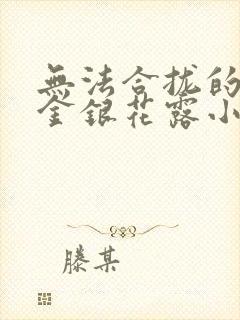 無法合拢的
金銀花露小
滕某